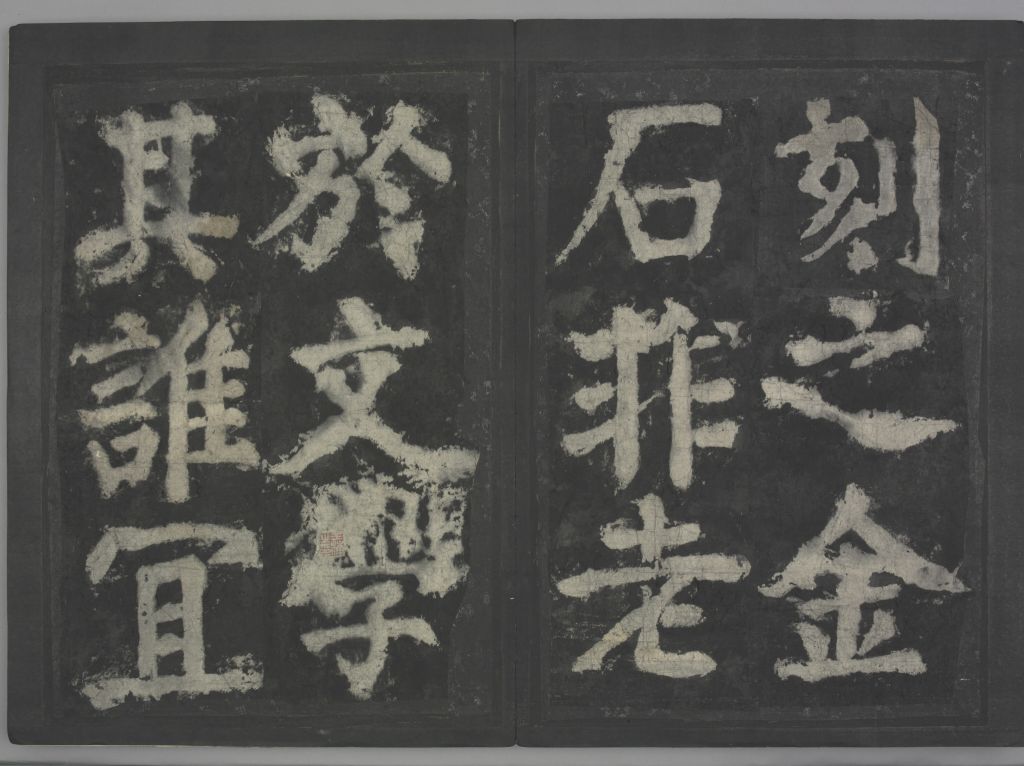 刻之金
石非老
於文學
其誰冝